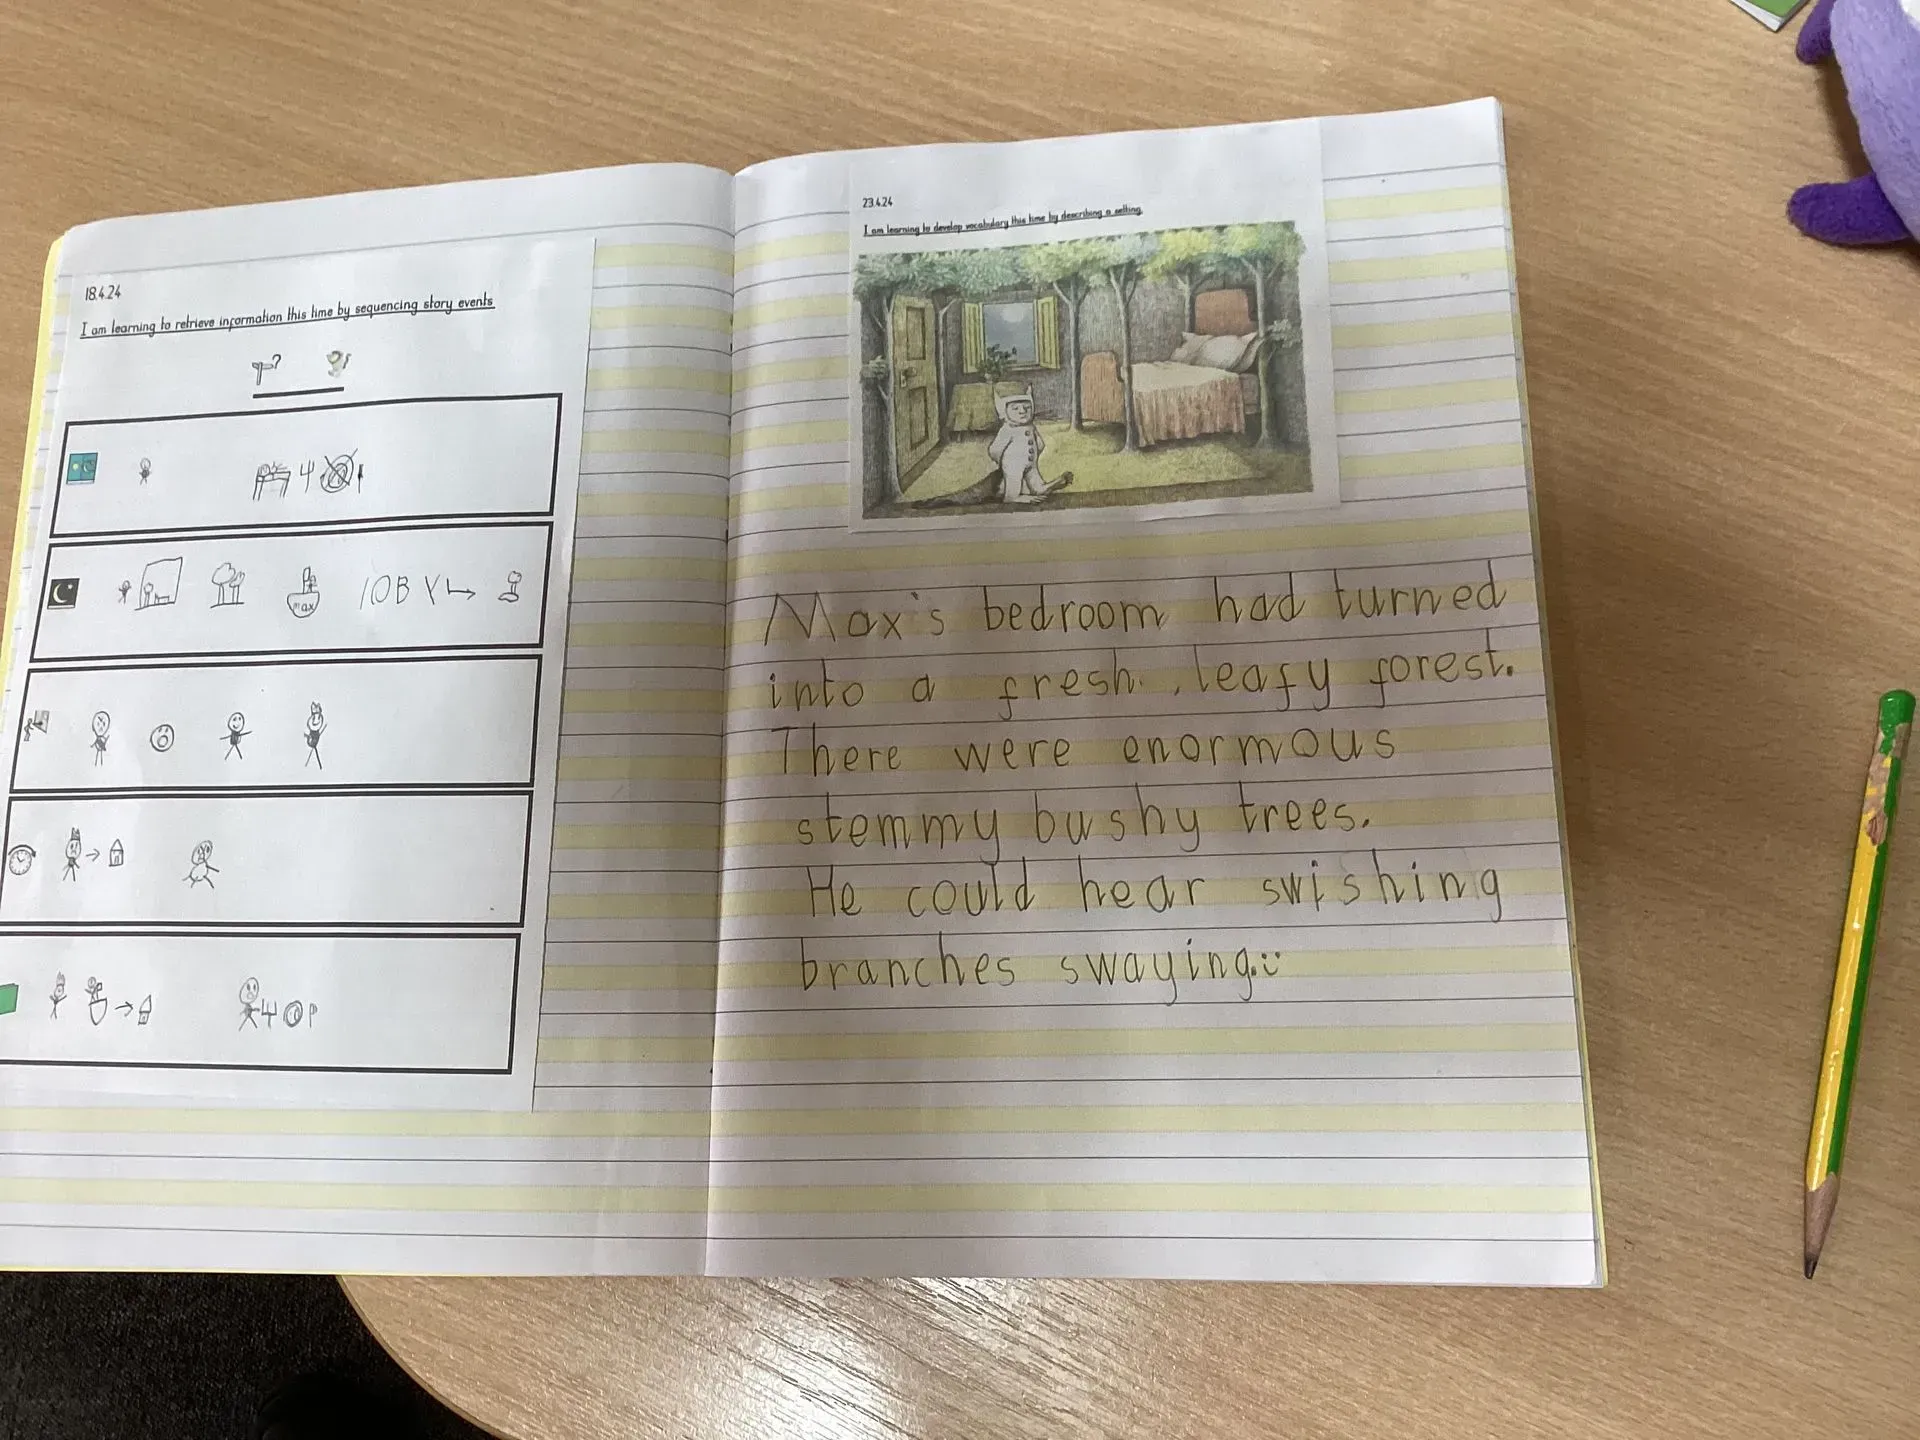 18.4.24
I am learning to retrieve information this time by sequencing story events
max
10B Y
23.4.24
I am learning to develop vocabulary this time by describing a setting.
Max's bedroom had turned
into a fresh , leafy forest.
There were enormous
stemmy bushy trees.
He could hear swishing
branches swaying.